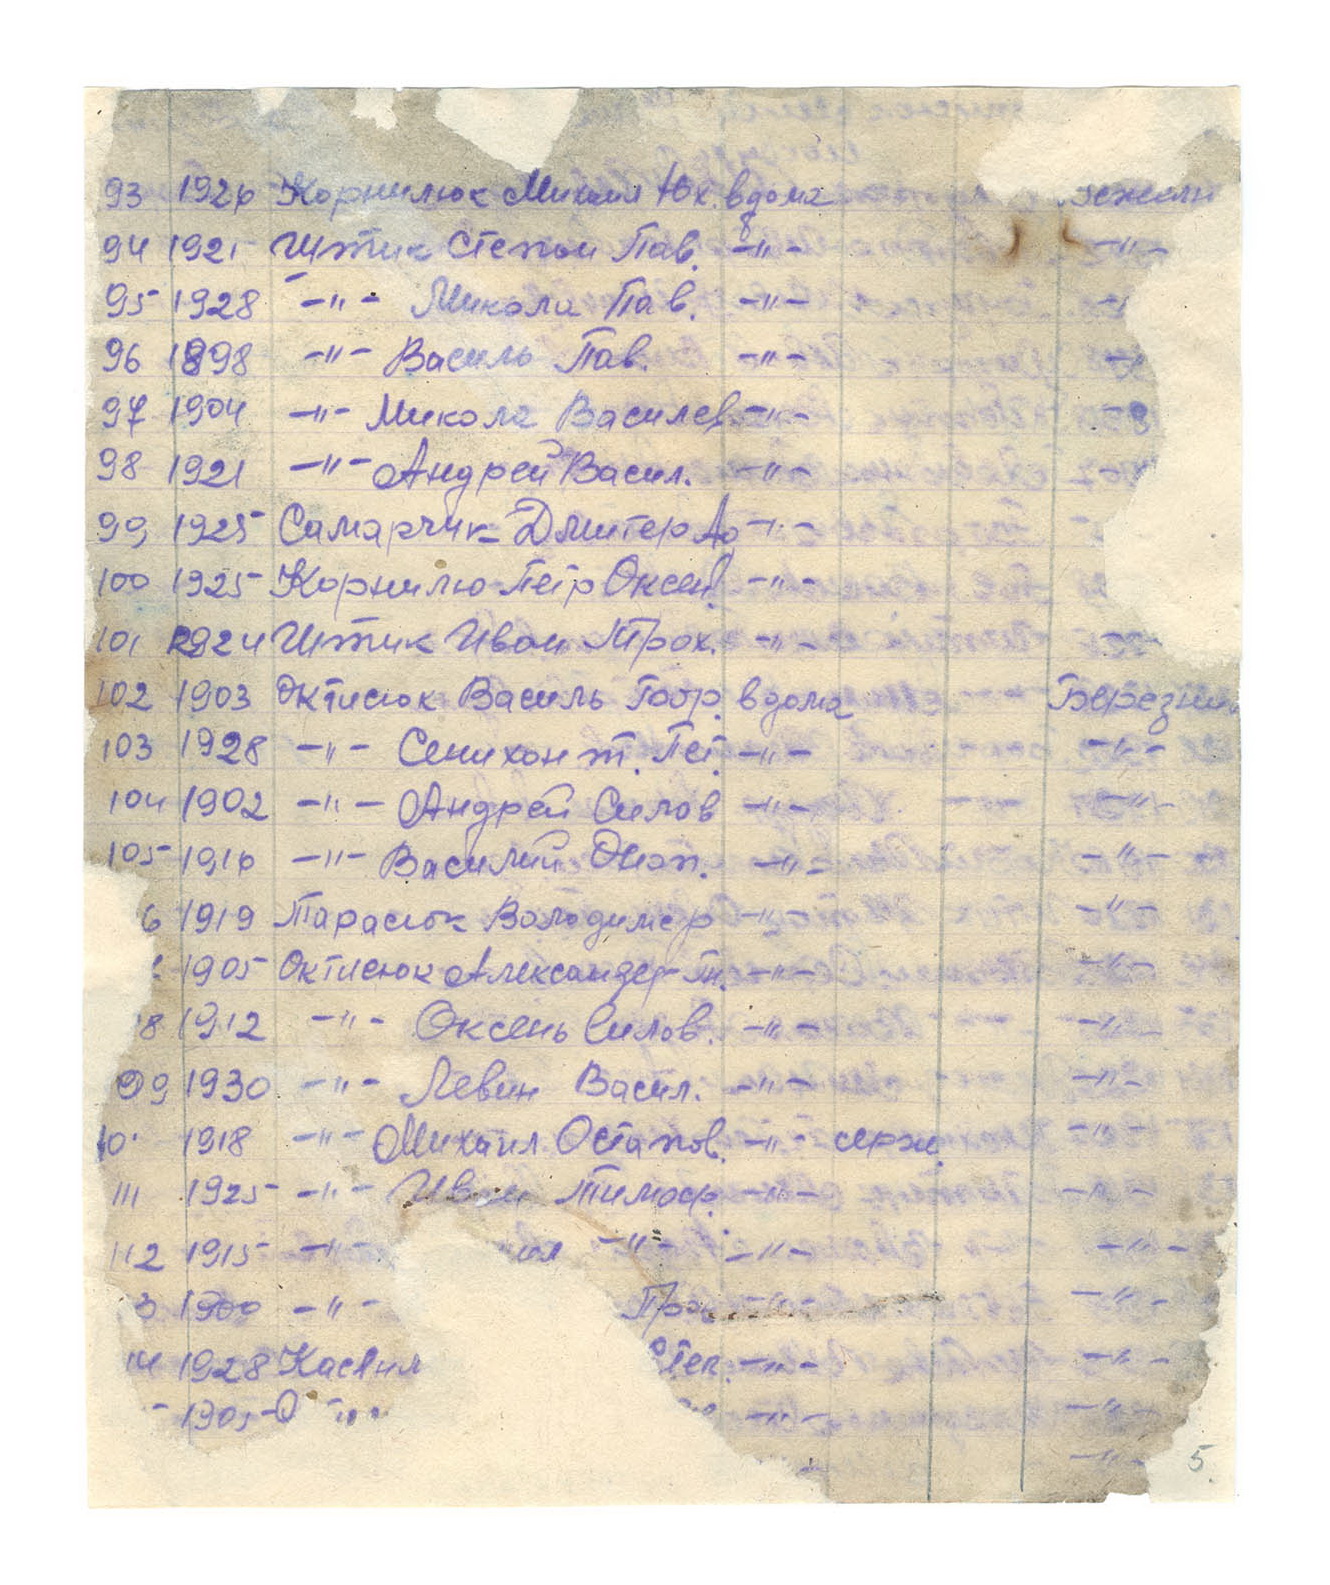 93 1926 Корнилюк Михаил Юх. вдома
94 1921 Штик Степан Пав. -"- -"-
95 1928 -"- Микола Пав. -"-
96 1898 -"- Василь Пав. -"-
97 1904 -"- Микола Василев -"-
98 1921 -"- Андрей Васил. -"-
99 1925 Самарчук Дмитер -"-
100 1925 Корнилю Петр Оксен. -"-
101 1924 Штик Иван Трох. -"-
102 1903 Октисюк Василь вдома Березни
103 1928 -"- Пет. -"- -"-
104 1902 -"- Андрей Силов -"- -"-
105 1916 -"- Василий -"- -"-
6 1919 Тарасюк Володимер -"- -"-
1905 Октисюк Александер -"- -"-
8 1912 -"- Оксень Силов. -"- -"-
09 1930 -"- Левин Васил. -"- -"-
1918 -"- Михаил Остапов. -"- серж. -"-
111 1925 -"- Иван Тимоф. -"- -"-
112 1915 -"- -"- -"- -"-
3 1900 -"- -"- -"-
14 1928 Степ. -"- -"-
1905 -"- -"-
-"-
5